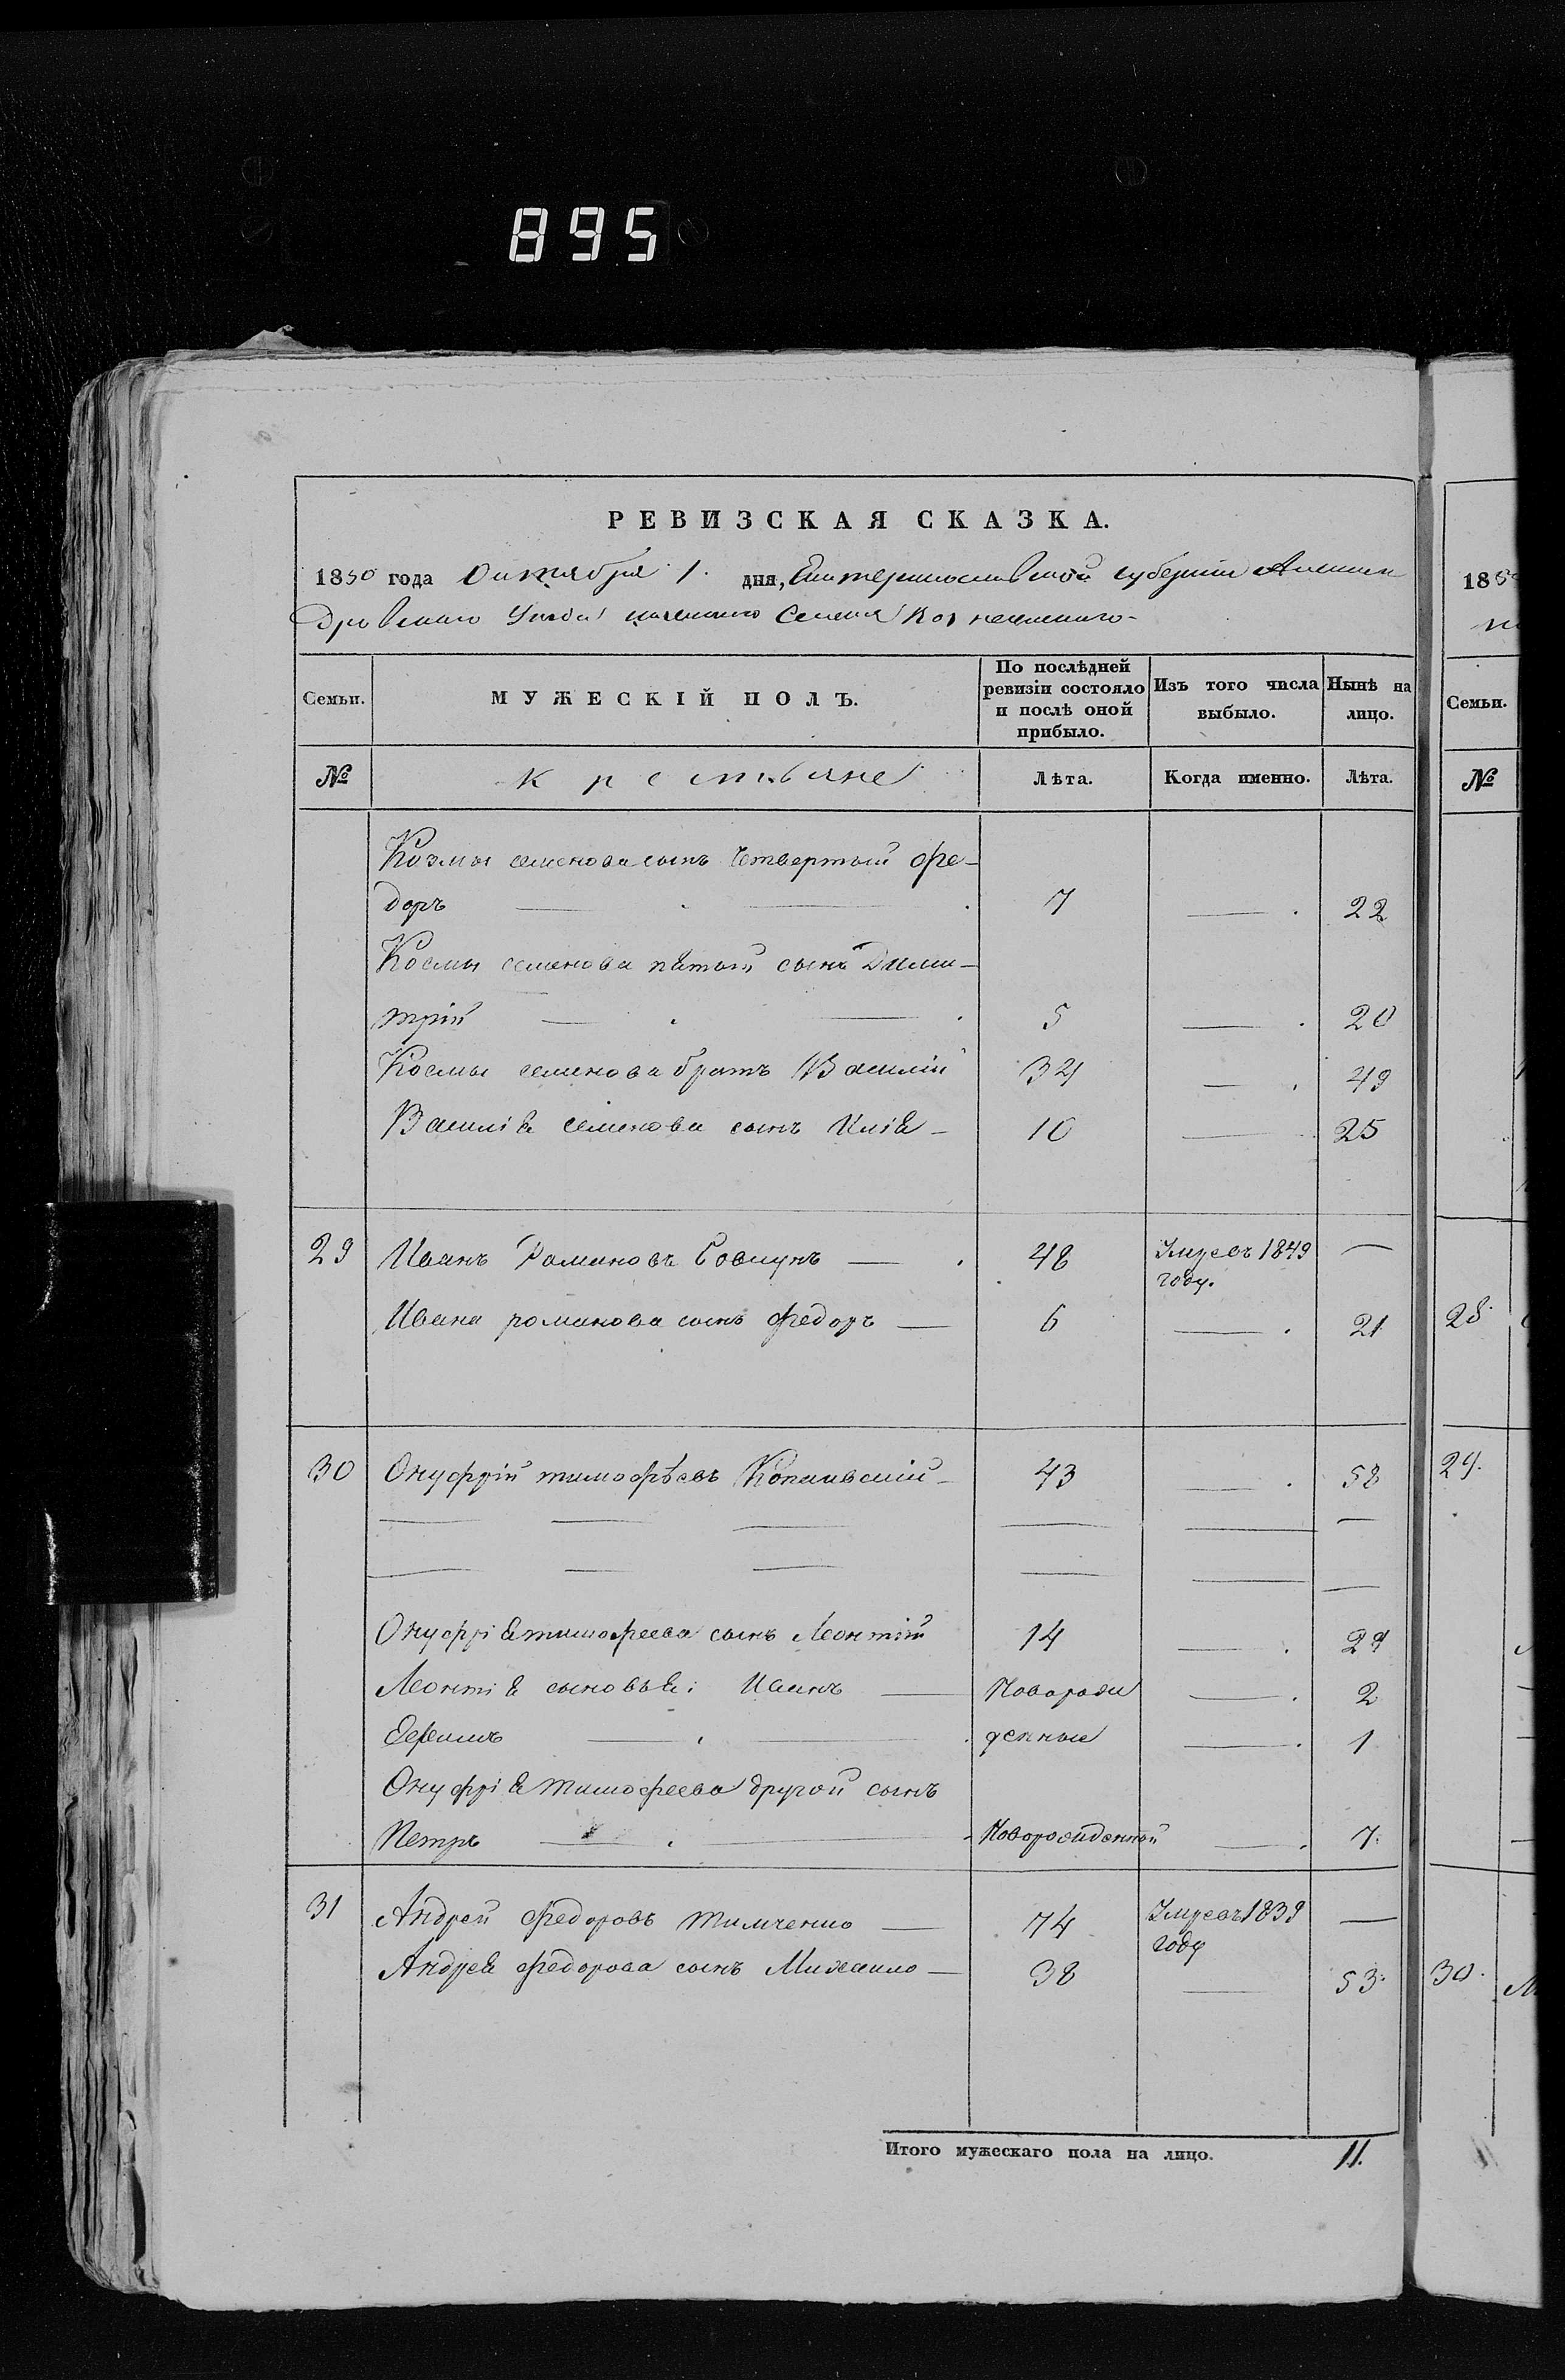 895
РЕВИЗСКАЯ СКАЗКА.
1850 года Октября 1. дня, Екатеринославской губернии Алексан
дровскаго Уезда казенного Селения Вознесенского-
Семьи. МУЖЕСКІЙ ПОЛЪ. По послѣдней ревизіи состояло и послѣ оной прибыло. Изъ того числа выбыло. Нынѣ на лицо.
№ Крестьяне Лѣта. Когда именно. Лѣта.
Козмы семенова сынъ четвертый фе-
доръ 7 22
Космы семенова пятый сынъ Дими-
трій 5 20
Космы семенова братъ Василій 34 49
Василія семенова сынъ Илія 10 25
29 Иванъ Романовъ Совкунъ 48 Умре въ 1849 году.
Ивана романова сынъ федоръ 6 21
30 Онуфрій тимофѣевъ 43 58
Онуфрія тимофеева сынъ Леонтій 14 29
Леонтія сыновья: Иванъ Новорож 2
Ефимъ денные 1
Онуфрія тимофеева другой сынъ
Петръ Новорожденной 7.
31 Андрей федоровъ тимченко 74 Умре въ 1839 году
Андрея федорова сынъ Михаило 38 53.
Итого мужескаго пола на лицо. 11.
185
Семьи.
№
28.
29.
30.